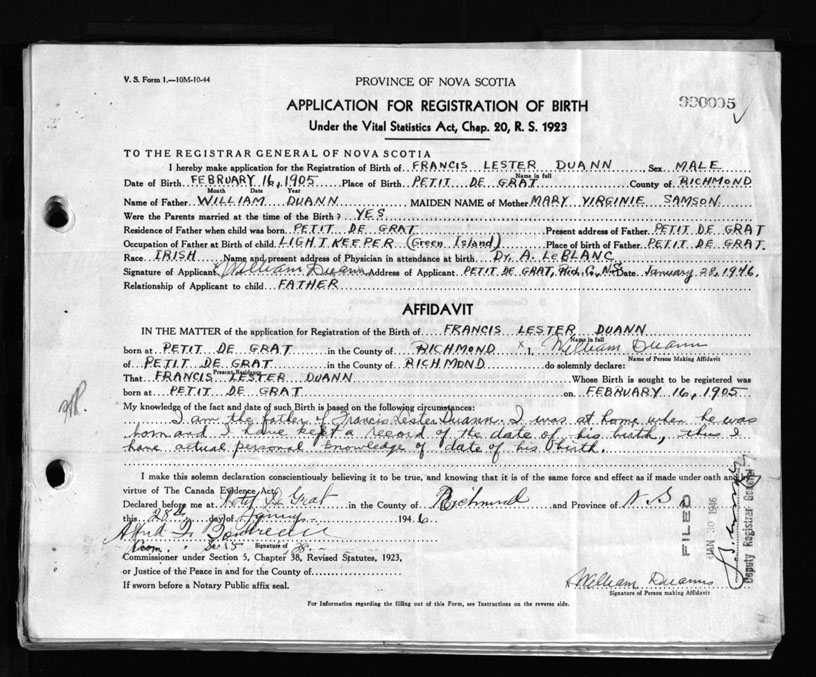 V. S. Form 1.—10M-10-44
PROVINCE OF NOVA SCOTIA
APPLICATION FOR REGISTRATION OF BIRTH
Under the Vital Statistics Act, Chap. 20, R. S. 1923
TO THE REGISTRAR GENERAL OF NOVA SCOTIA
I hereby make application for the Registration of Birth of FRANCIS LESTER DUANN Sex MALE
Name in full
Date of Birth FEBRUARY 16, 1905 Place of Birth PETIT DE GRAT County of RICHMOND
Month Date Year
Name of Father WILLIAM DUANN MAIDEN NAME of Mother MARY VIRGINIE SAMSON
Were the Parents married at the time of the Birth? YES
Residence of Father when child was born PETIT DE GRAT Present address of Father PETIT DE GRAT
Occupation of Father at Birth of child LIGHT KEEPER (Green Island) Place of birth of Father PETIT DE GRAT.
Race IRISH Name and present address of Physician in attendance at birth Dr. A. LeBLANC
Signature of Applicant William Duann Address of Applicant PETIT DE GRAT, Rich. Co., N.S. Date January 28, 1946.
Relationship of Applicant to child FATHER
AFFIDAVIT
IN THE MATTER of the application for Registration of the Birth of FRANCIS LESTER DUANN
Name in full
born at PETIT DE GRAT in the County of RICHMOND x I, William Duann
Name of Person Making Affidavit
of PETIT DE GRAT in the County of RICHMOND do solemnly declare:
Present Residence
That FRANCIS LESTER DUANN Whose Birth is sought to be registered was
born at PETIT DE GRAT on FEBRUARY 16, 1905
My knowledge of the fact and date of such Birth is based on the following circumstances:
I am the father of Francis Lester Duann. I was at home when he was
born and I have kept a record of the date of his birth, thus I
have actual personal knowledge of date of his birth.
I make this solemn declaration conscientiously believing it to be true, and knowing that it is of the same force and effect as if made under oath and
virtue of The Canada Evidence Act.
Declared before me at Petit de Grat in the County of Richmond and Province of N S
this 28th day of 1946
Signature of
Commissioner under Section 5, Chapter 38, Revised Statutes, 1923,
or Justice of the Peace in and for the County of
If sworn before a Notary Public affix seal.
William Duann
Signature of Person making Affidavit
For Information regarding the filling out of this Form, see Instructions on the reverse side.
FILED
JAN 30 1946
Deputy Registrar General